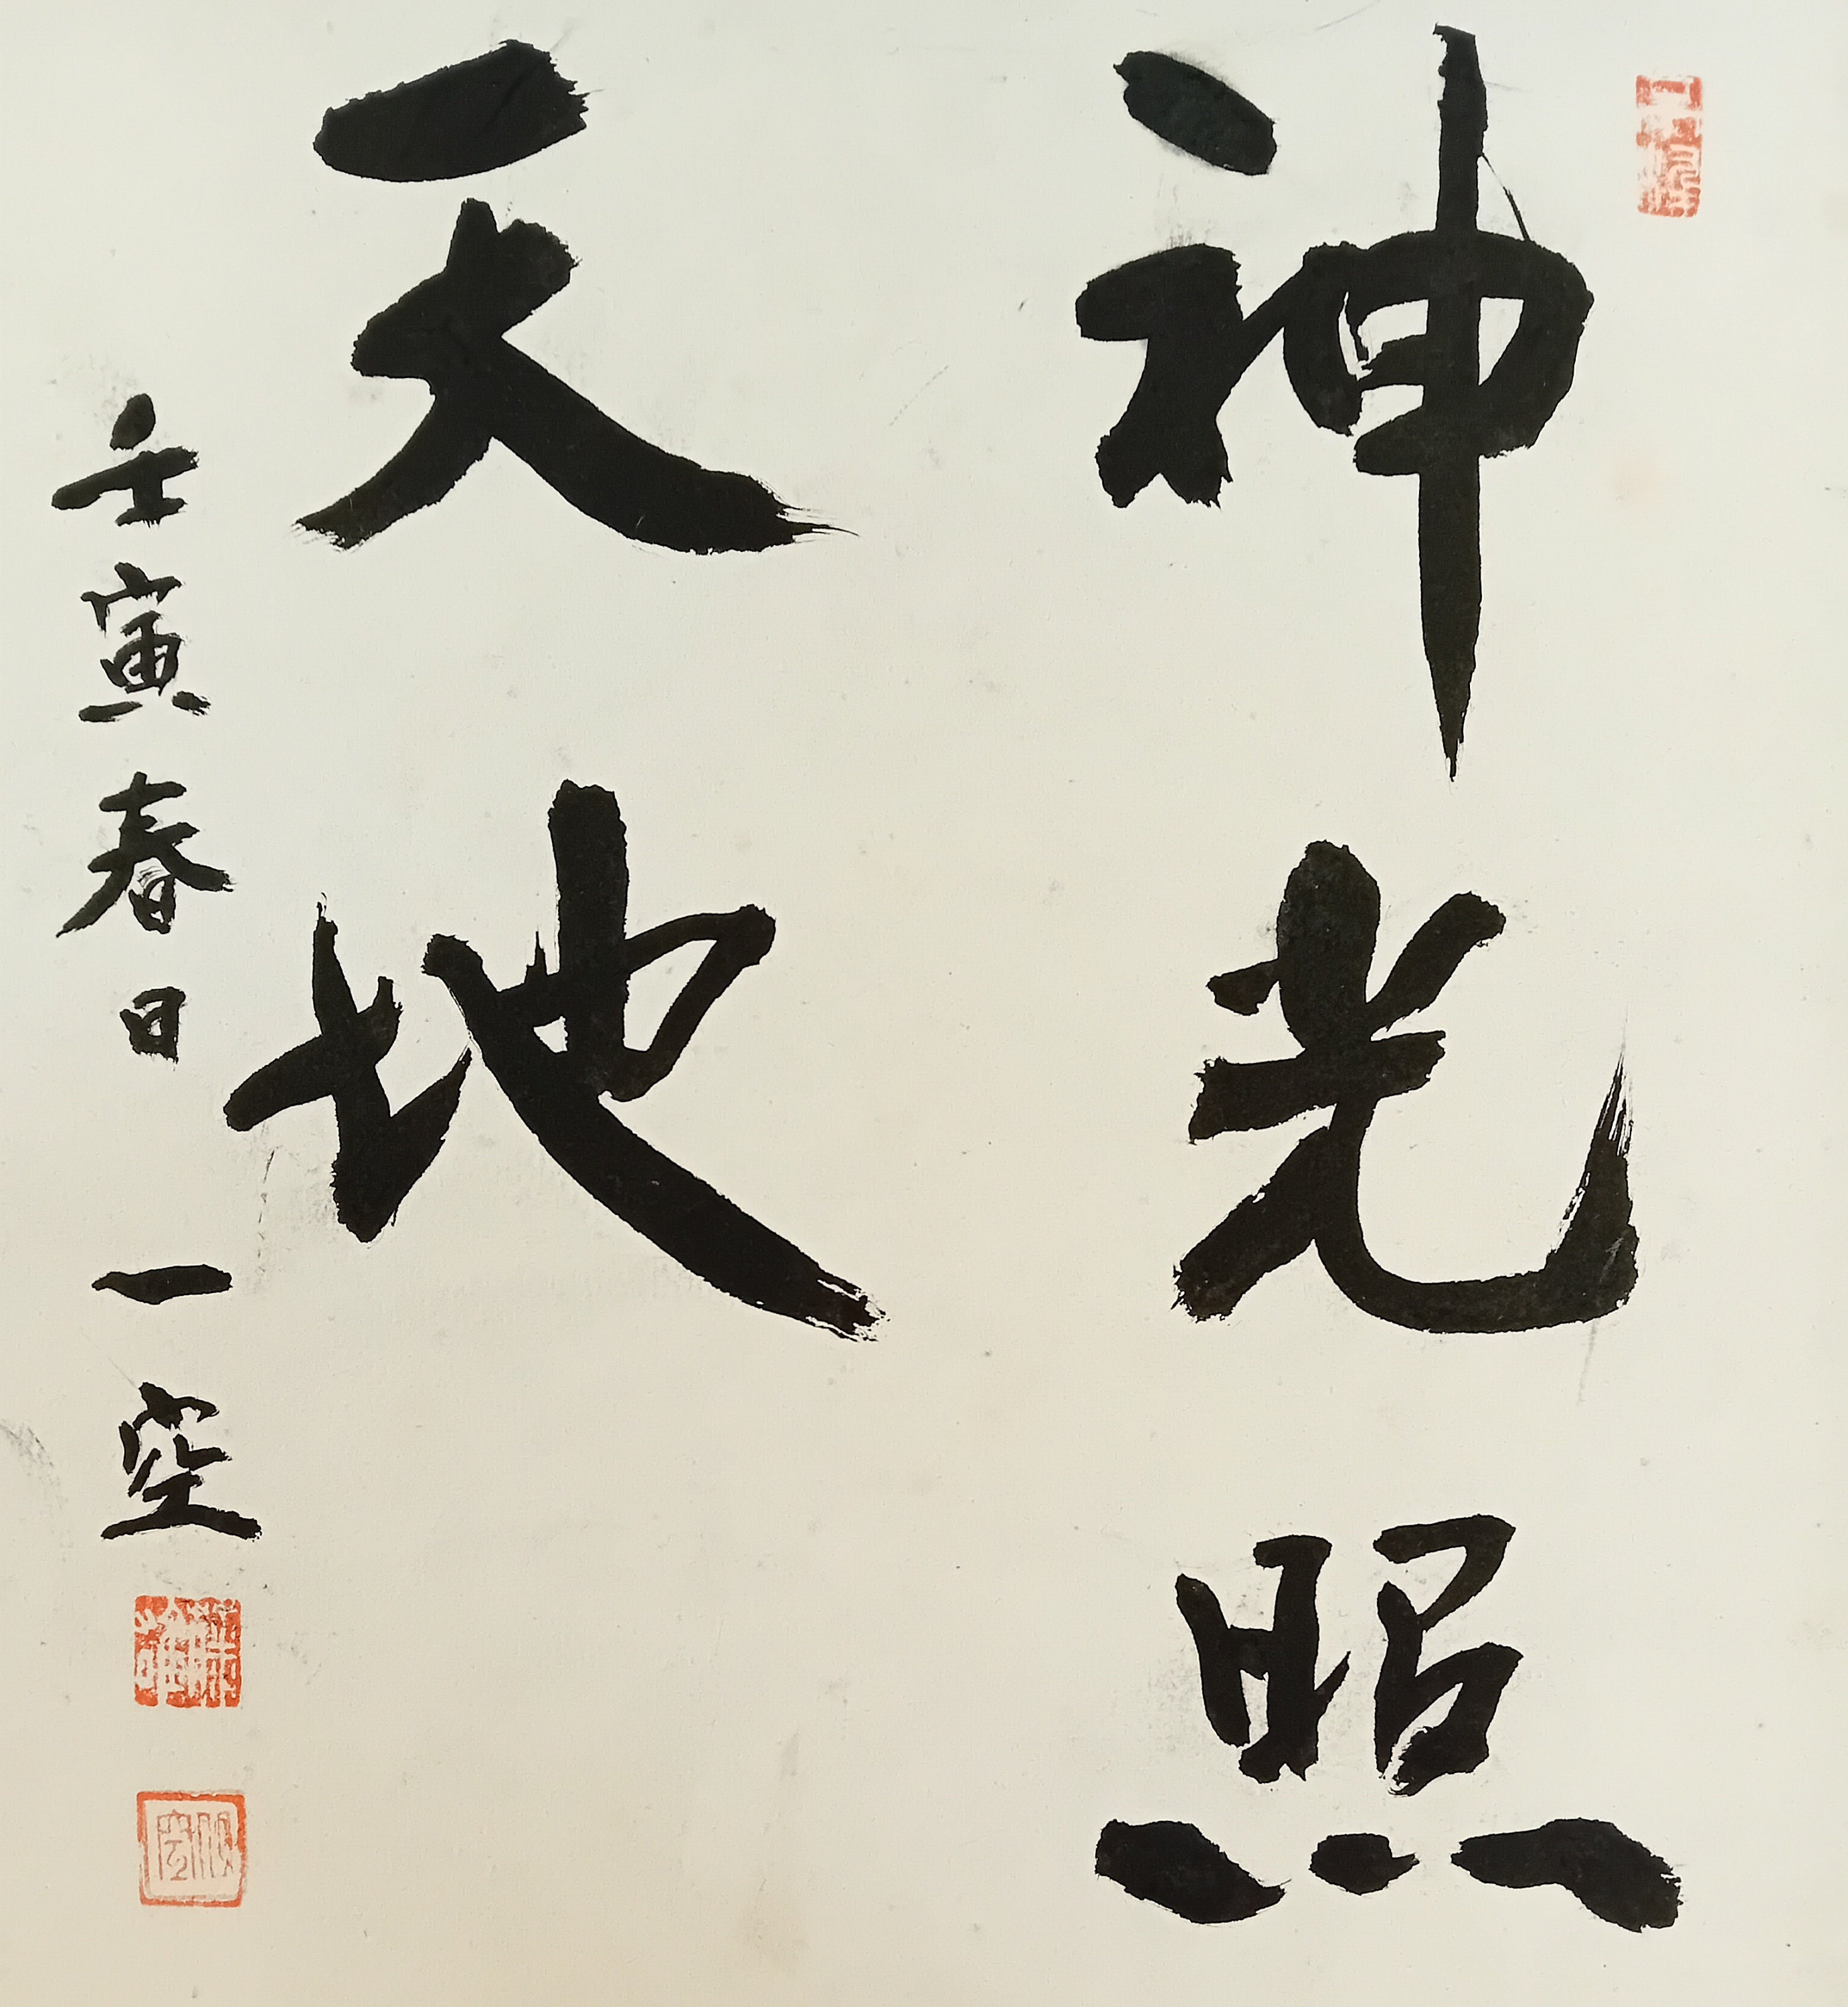 神光照
天地
壬寅春日一空